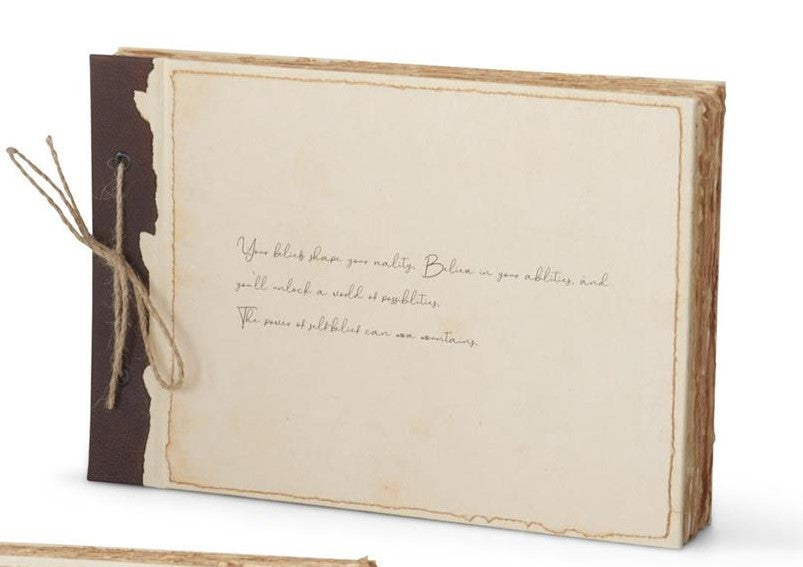 Your beliefs shape your reality. Believe in your abilities, and
you'll unlock a world of possibilities.
The power of self-belief can mountains.